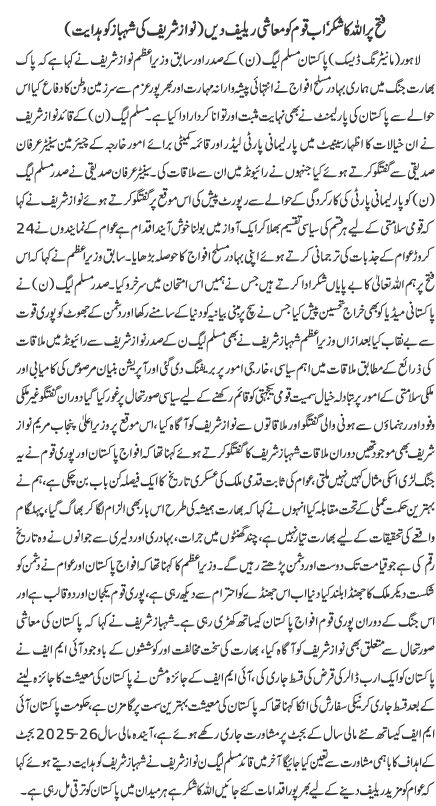 فتح پر اللہ کا شکر، اب قوم کو معاشی ریلیف دیں (نواز شریف کی شہباز کو ہدایت)
لاہور (مانیٹرنگ ڈیسک) پاکستان مسلم لیگ (ن) کے صدر اور سابق وزیراعظم نواز شریف نے کہا ہے کہ پاک
بھارت جنگ میں ہماری بہادر مسلح افواج نے انتہائی پیشہ وارانہ مہارت اور بھرپور عزم سے سرزمین وطن کا دفاع کیا اس
حوالے سے پاکستان کی پارلیمنٹ نے بھی نہایت مثبت اور توانا کردار ادا کیا ہے۔ مسلم لیگ (ن) کے قائد نواز شریف
نے ان خیالات کا اظہار سینیٹ میں پارلیمانی پارٹی لیڈر اور قائمہ کمیٹی برائے امور خارجہ کے چیئرمین سینیٹر عرفان
صدیقی سے گفتگو کرتے ہوئے کیا جنہوں نے رائیونڈ میں ان سے ملاقات کی۔ سینیٹر عرفان صدیقی نے صدر مسلم لیگ
(ن) کو پارلیمانی پارٹی کی کارکردگی کے حوالے سے رپورٹ پیش کی اس موقع پر گفتگو کرتے ہوئے نواز شریف نے کہا
کہ قومی سلامتی کے لیے ہر قسم کی سیاسی تقسیم بھلا کر ایک آواز میں بولنا خوش آئند اقدام ہے عوام کے نمائندوں نے 24
کروڑ عوام کے جذبات کی ترجمانی کرتے ہوئے اپنی بہادر مسلح افواج کا حوصلہ بڑھایا۔ سابق وزیراعظم نے کہا کہ اس
فتح پر ہم اللہ تعالیٰ کا بے پایاں شکر ادا کرتے ہیں جس نے ہمیں اس امتحان میں سرخرو کیا۔ صدر مسلم لیگ (ن) نے
پاکستانی میڈیا کو بھی خراج تحسین پیش کیا جس نے سچ پر مبنی بیانیہ کو دنیا کے سامنے رکھا اور دشمن کے جھوٹ کو پوری قوت
سے بے نقاب کیا بعد ازاں وزیراعظم شہباز شریف نے بھی مسلم لیگ ن کے صدر نواز شریف سے رائیونڈ میں ملاقات
کی ذرائع کے مطابق ملاقات میں اہم سیاسی، خارجی امور پر بریفنگ دی گئی اور آپریشن بنیان مرصوص کی کامیابی اور
ملکی سلامتی کے امور پر تبادلہ خیال سمیت قومی یکجہتی کو قائم رکھنے کے لیے سیاسی صورتحال پر غور کیا گیا دوران گفتگو غیر ملکی
وفود اور رہنماؤں سے ہونی والی گفتگو اور ملاقاتوں سے نواز شریف کو آگاہ کیا، اس موقع پر وزیر اعلیٰ پنجاب مریم نواز
شریف بھی موجود تھیں دوران ملاقات شہباز شریف کا گفتگو کرتے ہوئے کہنا تھا کہ افواج پاکستان اور پوری قوم نے یہ
جنگ لڑی اسکی مثال کہیں نہیں ملتی، عوام کی ثابت قدمی ملک کی عسکری تاریخ کا ایک فیصلہ کن باب بن چکی ہے، ہم نے
بہترین حکمت عملی کے تحت مقابلہ کیا انہوں نے کہا کہ بھارت ہمیشہ کی طرح اس بار بھی الزام لگا کر بھاگ گیا، پہلگام
واقعے کی تحقیقات کے لیے بھارت تیار نہیں ہے، چند گھنٹوں میں جرات، بہادری اور دلیری سے جوانوں نے وہ تاریخ
رقم کی ہے جو قیامت تک دوست اور دشمن پڑھتے رہیں گے۔ وزیراعظم کا کہنا تھا کہ افواج پاکستان اور عوام نے دشمن کو
شکست دیکر ملک کا جھنڈا بلند کیا دنیا اب اس جھنڈے کو احترام سے دیکھ رہی ہے، پوری قوم یکجان اور دو قالب ہے اور
اس جنگ کے دوران پوری قوم افواج پاکستان کیساتھ کھڑی رہی ہے۔ شہباز شریف نے کہا کہ پاکستان کی معاشی
صورتحال سے متعلق بھی نواز شریف کو آگاہ کیا، بھارت کی سخت مخالفت اور کوششوں کے باوجود آئی ایم ایف نے
پاکستان کو ایک ارب ڈالر کی قرض کی قسط جاری کی، آئی ایم ایف کے جائزہ مشن نے پاکستان کی معیشت کا جائزہ لینے
کے بعد قسط جاری کرنیکی سفارش کی انکا کہنا تھا کہ پاکستان کی معیشت بہترین سمت پر گامزن ہے، حکومت پاکستان آئی
ایم ایف کیساتھ نئے مالی سال کے بجٹ پر مشاورت جاری رکھے ہوئے ہے، آئندہ مالی سال 26-2025 بجٹ
کے اہداف کا باہمی مشاورت سے تعین کیا جائیگا آخر میں قائد مسلم لیگ ن نواز شریف نے شہباز شریف کو ہدایت دیتے ہوئے کہا
کہ عوام کو مزید ریلیف دینے کے لیے بھرپور اقدامات کئے جائیں اللہ کا شکر ہے ہر میدان میں پاکستان کو ترقی مل رہی ہے۔